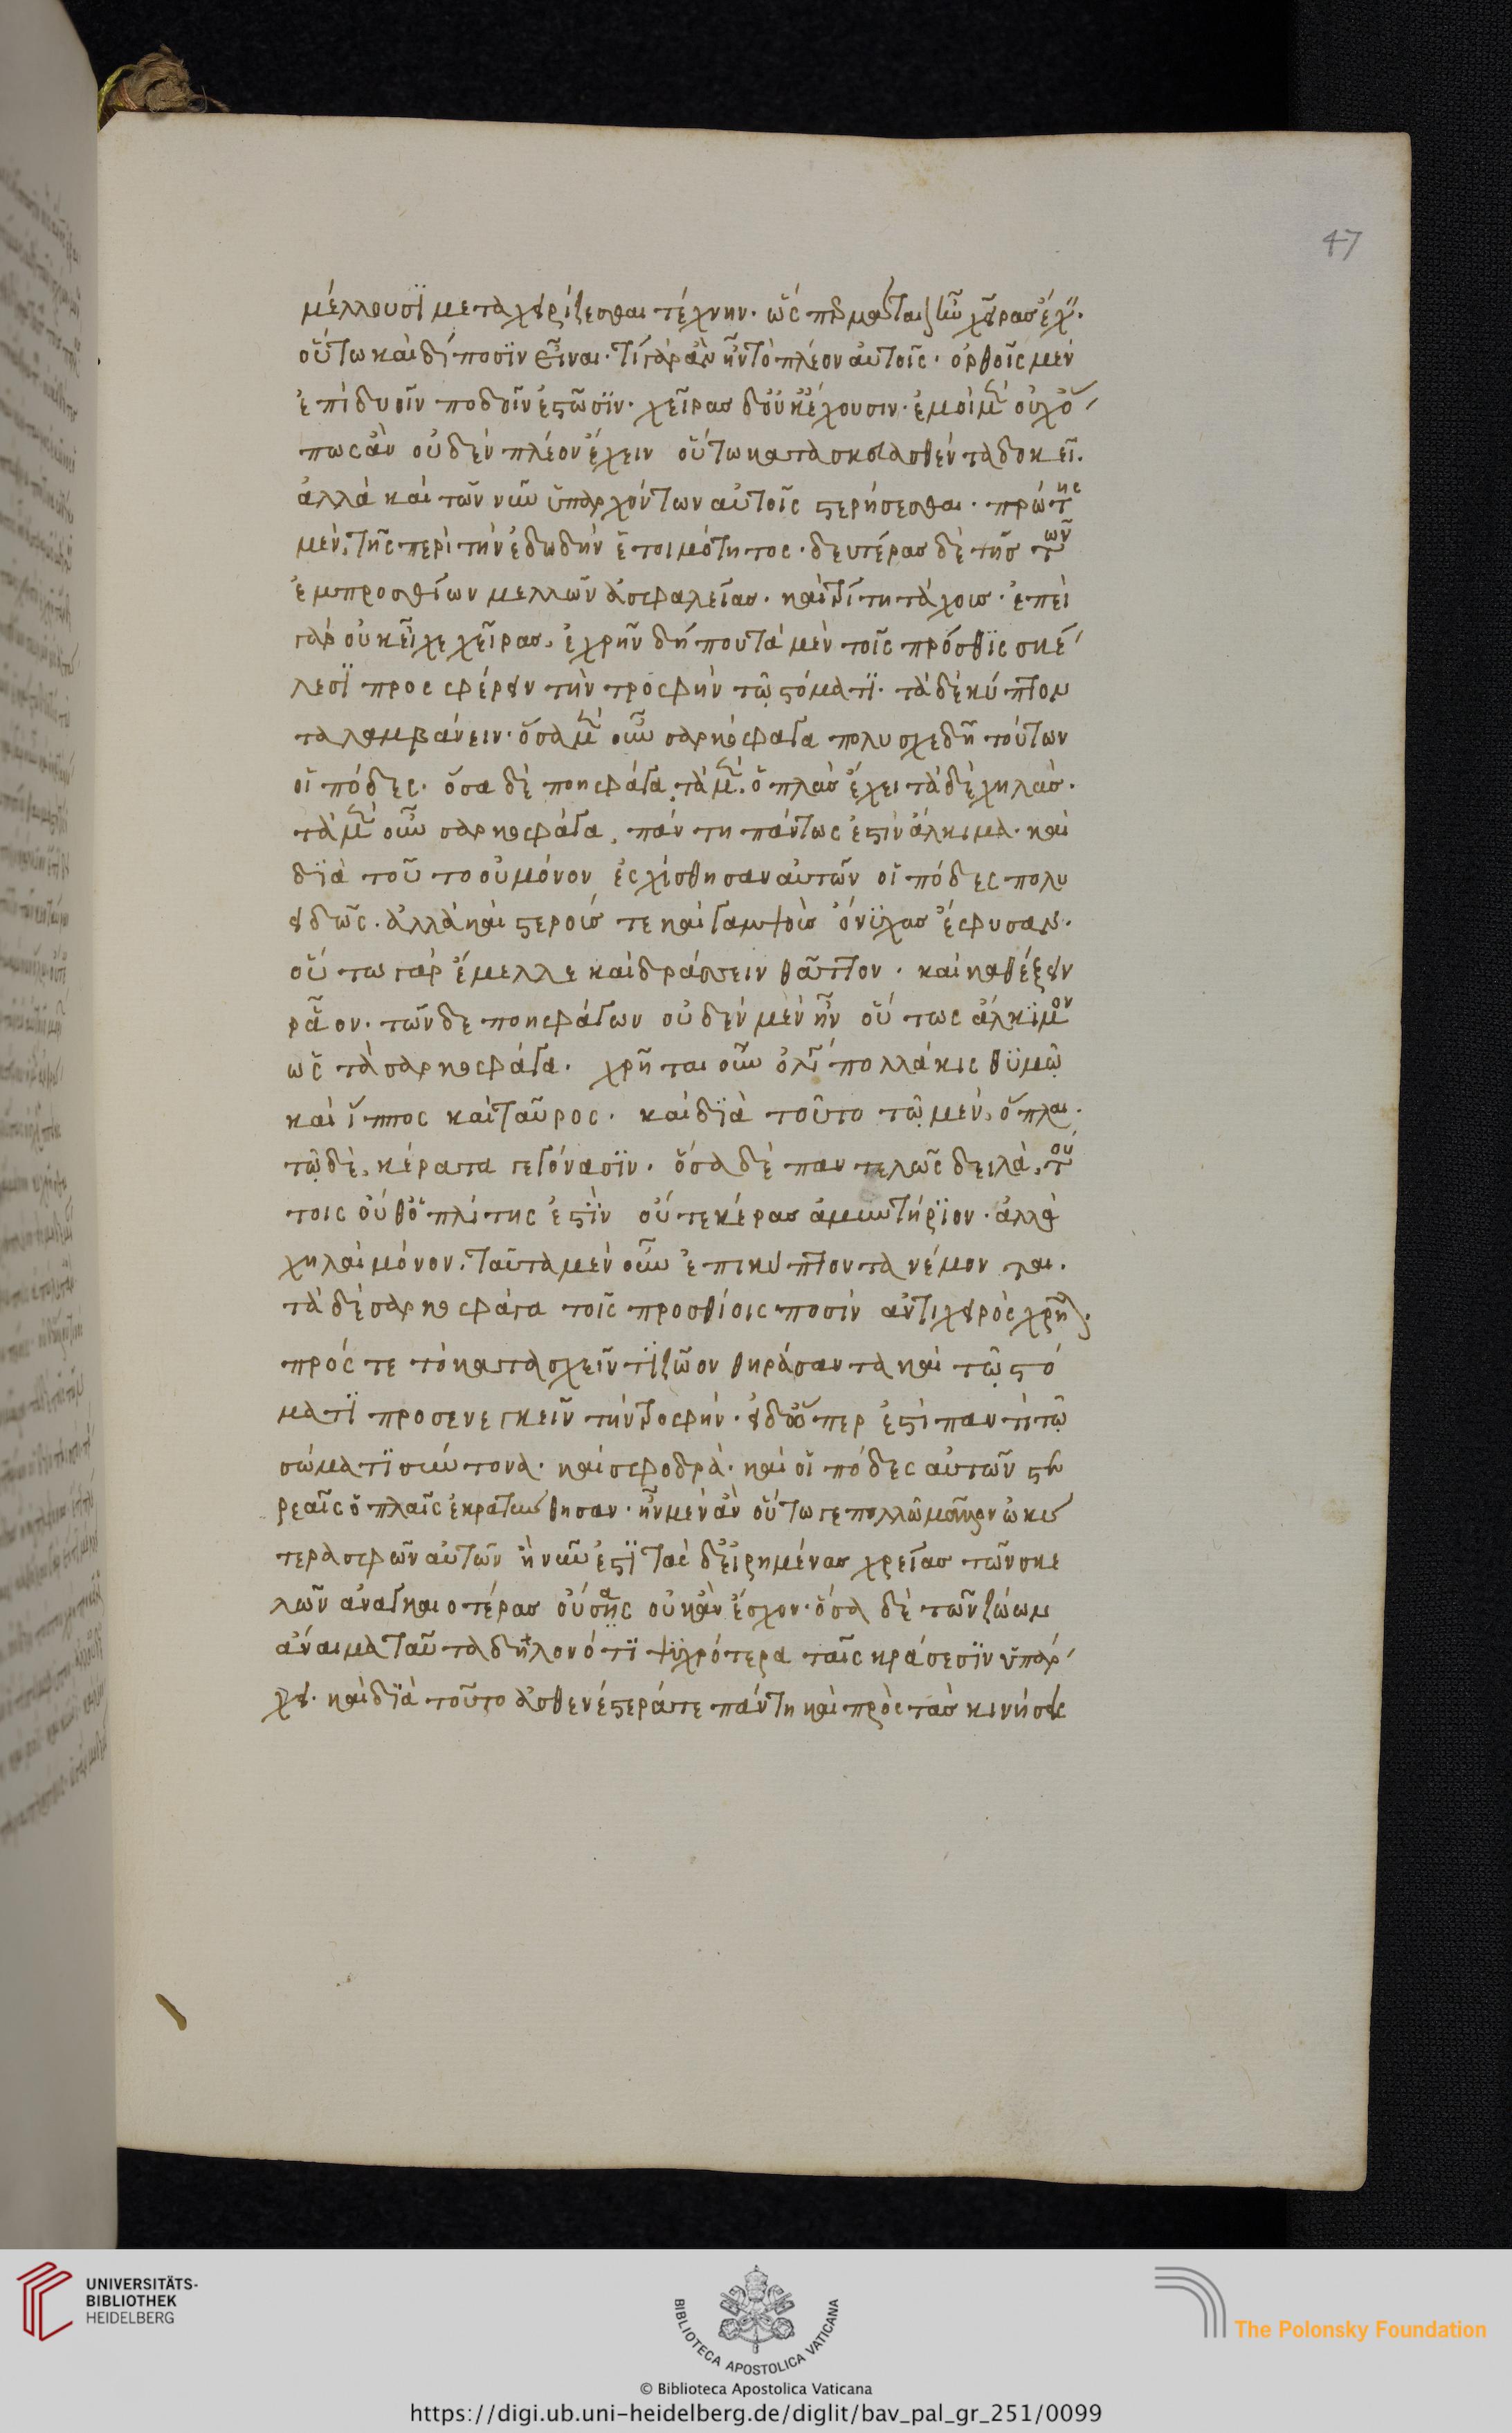 47
μέλλουσϊ μεταχειρίζεσθαι τέχνην· ὡς
οὕτω καὶ δίποσϊν εἶναι· τί γὰρ ἂν ἦν τὸ πλέον αὐτοῖς· ὀρθοῖς μὲν
ἐπὶ δυοῖν ποδοῖν ἑστῶσϊν· χεῖρας δ' οὐκ ἔχουσιν· ἐμοὶ μὲν οὐχ ὅ
πως ἂν οὐδὲν πλέον ἔχειν οὕτω κατασκευασθέντα δοκεῖ·
ἀλλὰ καὶ τῶν νῦν ὑπαρχόντων αὐτοῖς στερήσεσθαι· πρώτης
μὲν, τῆς περὶ τὴν ἐδωδὴν ἑτοιμότητος· δευτέρας δὲ τῆς τῶν
ἐμπροσθίων μελλῶν ἀσφαλείας· καὶ τρίτη τάχους· ἐπεὶ
γὰρ οὐκ εἶχε χεῖρας, ἐχρῆν δήπου τὰ μὲν τοῖς πρόσθϊς σκέ
λεσϊ προσφέρειν τὴν τροφὴν τῷ στόματϊ· τὰ δὲ κύπτον
τα λαμβάνειν· ὅσα μὲν οὖν σαρκοφάγα πολυσχεδῆ τούτων
οἱ πόδες· ὅσα δὲ ποηφάγα, τὰ μὲν, ὁπλὰς ἔχει τὰ δὲ χηλάς·
τὰ μὲν οὖν σαρκοφάγα, πάντη πάντως ἐστὶν ἄλκιμα· καὶ
δϊὰ τοῦτο οὐ μόνον ἐσχίσθησαν αὐτῶν οἱ πόδες πολυ
ειδῶς· ἀλλὰ καὶ στεροῖς τε καὶ γαμψοὺς ὄνϋχας ἔφυσαν·
οὕτω γὰρ ἔμελλε καὶ δράττειν θᾶττον· καὶ καθέξειν
ρᾷον· τῶν δὲ ποηφάγων οὐδὲν μὲν ἦν οὕτως ἄλκϊμον
ὡς τὰ σαρκοφάγα· χρῆται οὖν ὀλ πολλάκις θϋμῷ
καὶ ἵππος καὶ ταῦρος· καὶ δϊὰ τοῦτο τῷ μὲν, ὁπλαι·
τῷ δὲ, κέρατα γεγόνασϊν· ὅσα δὲ παντελῶς δειλά, τού
τοις οὐθ' ὁπλίτης ἐστϊν οὔτε κέρας ἀμυντήρϊον· ἀλλὰ
χηλαὶ μόνον· ταῦτα μὲν οὖν ἐπικύπτοντα νέμονται·
τὰ δὲ σαρκοφάγα τοῖς προσθίοις ποσὶν ἀντὶ χειρὸς χρῆται·
πρός τε τὸ κατασχεῖν τϊ ζῶον θηράσαντα καὶ τῷ στό
ματϊ προσενεγκεῖν τὴν τροφήν· εἰ δ' ὅπερ ἐστὶ παντὶ τῷ
σώματϊ σύντονα· καὶ σφοδρά· καὶ οἱ πόδες αὐτῶν στε
ρεαῖς ὁπλαῖς ἐκρατύνθησαν· ἦν μὲν ἂν οὕτω γε πολλῷ μᾶλλον ὠκύ
τερα σφῶν αὐτῶν ἢ νῦν ἐστϊ τὰς δ' εἰρημένας χρείας τῶν σκε
λῶν ἀναγκαιοτέρας οὔσης οὐκ ἂν ἔσχον· ὅσα δὲ τῶν ζώων
ἄναιμα ταῦτα δῆλον ὅτϊ ψϋχρότερα ταῖς κράσεσϊν ὑπάρ
χει· καὶ δϊὰ τοῦτο ἀσθενέστερά τε πάντη καὶ πρὸς τὰς κινήσεις
UNIVERSITÄTS-
BIBLIOTHEK
HEIDELBERG
BIBLIOTECA APOSTOLICA VATICANA
The Polonsky Foundation
© Biblioteca Apostolica Vaticana
https://digi.ub.uni-heidelberg.de/diglit/bav_pal_gr_251/0099